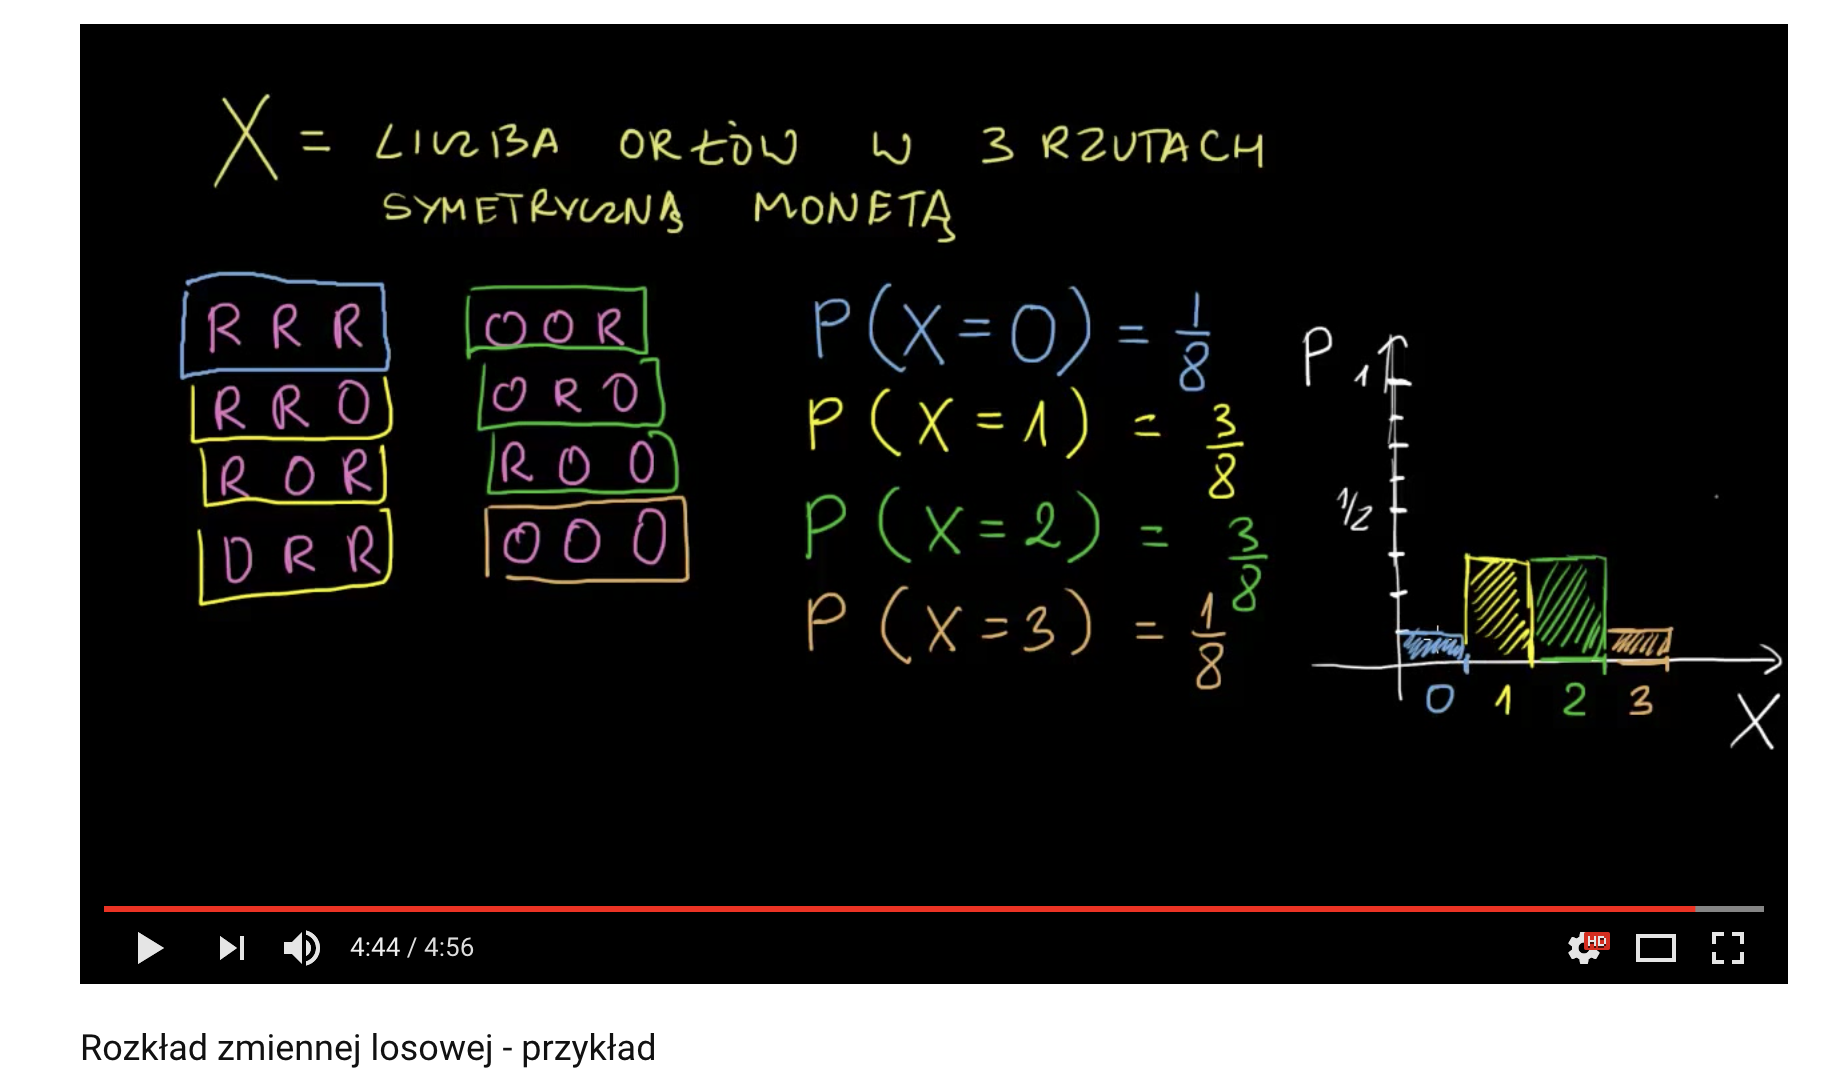 X = LICZBA ORŁÓW W 3 RZUTACH
SYMETRYCZNĄ MONETĄ
R R R
R R O
R O R
O R R
O O R
O R O
R O O
O O O
P(X=0) = 1/8
P(X=1) = 3/8
P(X=2) = 3/8
P(X=3) = 1/8
P
1
1/2
0 1 2 3
X
4:44 / 4:56
HD
Rozkład zmiennej losowej - przykład